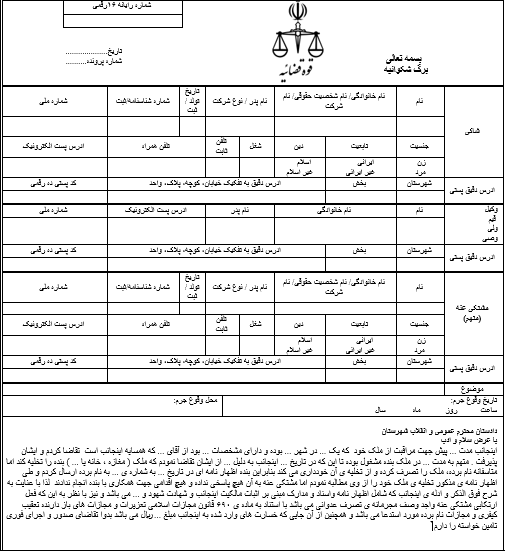 شماره رایانه ۱۶رقمی
قوه قضائیه
بسمه تعالی
برگ شکوائیه
تاریخ....................
شماره پرونده..........
شاکی
نام
نام خانوادگی/ نام شخصیت حقوقی/ نام شرکت
نام پدر / نوع شرکت
تاریخ تولد / ثبت
شماره شناسنامه/ثبت
شماره ملی
جنسیت
تابعیت
دین
شغل
تلفن ثابت
تلفن همراه
ادرس پست الکترونیک
زن
مرد
ایرانی
غیر ایرانی
اسلام
غیر اسلام
ادرس دقیق پستی
شهرستان
بخش
ادرس دقیق به تفکیک خیابان، کوچه، پلاک، واحد
کد پستی ده رقمی
وکیل
قیم
ولی
وصی
نام
نام خانوادگی
نام پدر
ادرس پست الکترونیک
شماره ملی
ادرس دقیق پستی
شهرستان
بخش
ادرس دقیق به تفکیک خیابان، کوچه، پلاک، واحد
کد پستی ده رقمی
مشتکی عنه
(متهم)
نام
نام خانوادگی/ نام شخصیت حقوقی/ نام شرکت
نام پدر / نوع شرکت
تاریخ تولد / ثبت
شماره شناسنامه/ثبت
شماره ملی
جنسیت
تابعیت
دین
شغل
تلفن ثابت
تلفن همراه
ادرس پست الکترونیک
زن
مرد
ایرانی
غیر ایرانی
اسلام
غیر اسلام
ادرس دقیق پستی
شهرستان
بخش
ادرس دقیق به تفکیک خیابان، کوچه، پلاک، واحد
کد پستی ده رقمی
موضوع
تاریخ وقوع جرم:
محل وقوع جرم:
ساعت روز ماه سال
دادستان محترم عمومی و انقلاب شهرستان
با عرض سلام و ادب
اینجانب مدت ... پیش جهت مراقبت از ملک خود که یک ... در شهر ... بوده و دارای مشخصات ... بود از آقای ... که همسایه اینجانب است تقاضا کردم و ایشان
پذیرفت . متهم به مدت ... در ملک بنده مشغول بوده تا این که در تاریخ ... اینجانب به دلیل ... از ایشان تقاضا نمودم که ملک ( مغازه ، خانه یا ... ) بنده را تخلیه کند اما
متاسفانه نام برده، ملک را تصرف کرده و از تخلیه ی آن خودداری می کند بنابراین بنده اظهار نامه ای در تاریخ ... به شماره ی ... به نام برده ارسال کردم و طی
اظهار نامه ی مذکور تخلیه ی ملک خود را از وی مطالبه نمودم اما مشتکی عنه به آن هیچ پاسخی نداده و هیچ اقدامی جهت همکاری با بنده انجام ندادند لذا با عنایت به
شرح فوق الذکر و ادله ی اینجانب که شامل اظهار نامه واسناد و مدارک مبنی بر اثبات مالکیت اینجانب و شهادت شهود و ... می باشد و نیز با نظر به این که فعل
ارتکابی مشتکی عنه واجد وصف مجرمانه ی تصرف عدوانی می باشد با استناد به ماده ی ۶۹۰ قانون مجازات اسلامی تعزیرات و مجازات های باز دارنده تعقیب
کیفری و مجازات نام برده مورد استدعا می باشد و همچنین از آن جایی که خسارت های وارد شده به اینجانب مبلغ ...ریال می باشد بدوا تقاضای صدور و اجرای فوری
تامین خواسته را دارم